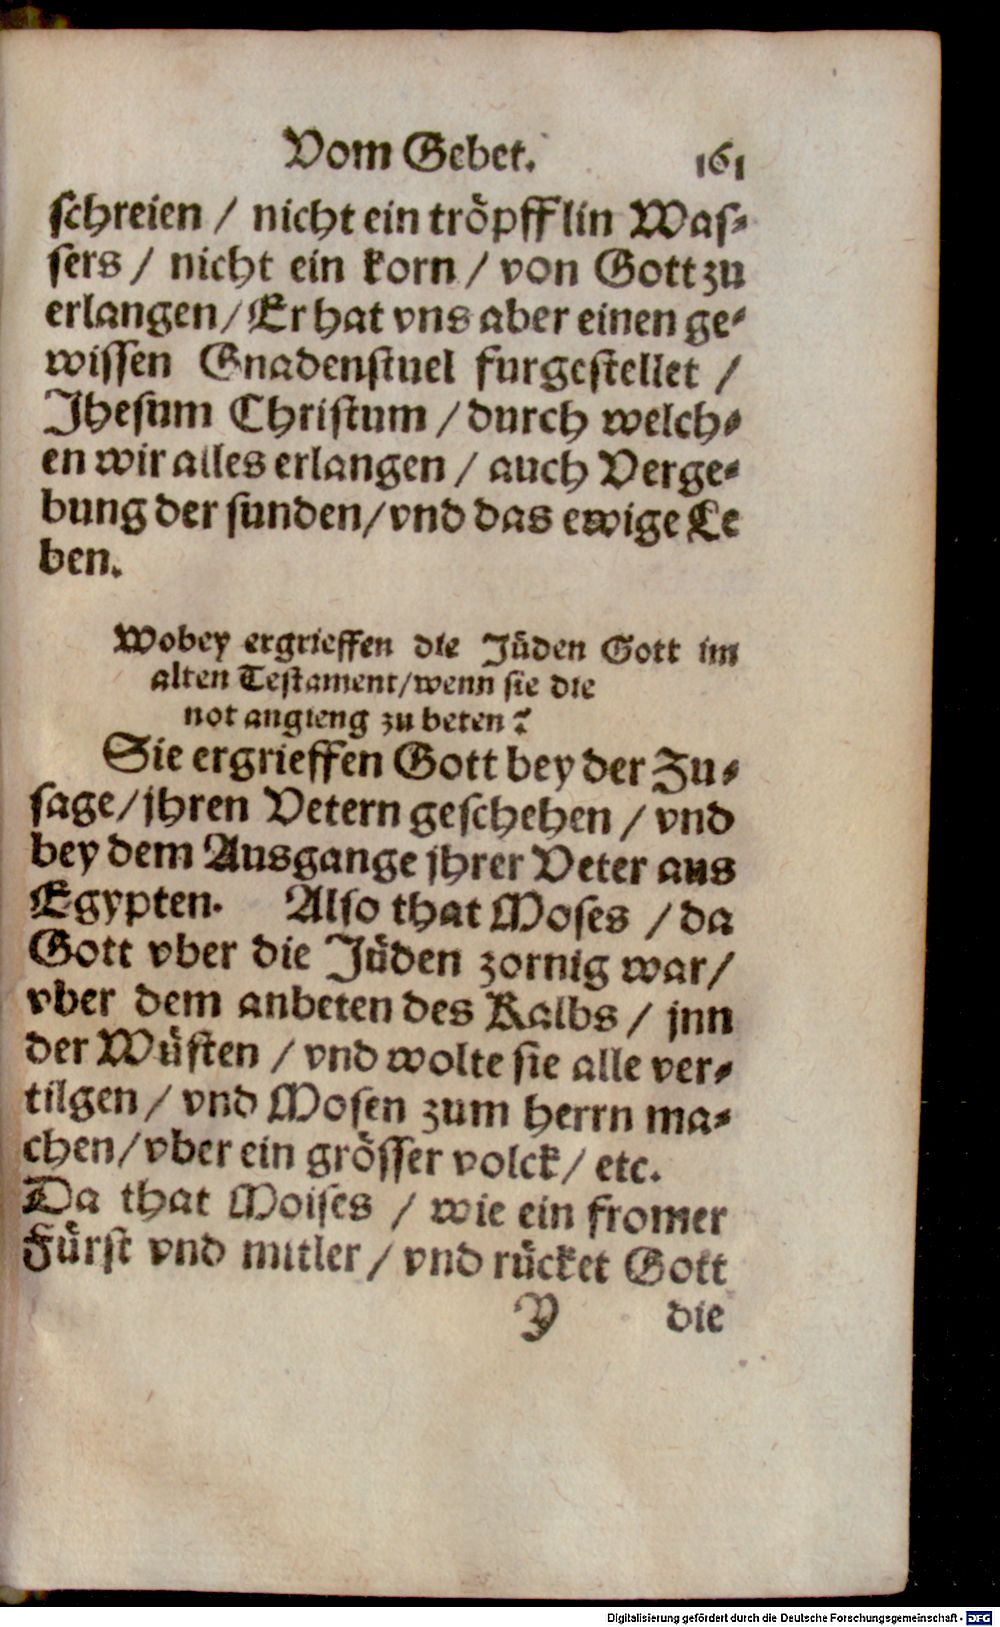 Vom Gebet. 161
schreien / nicht ein tröpfflin Was⸗
sers / nicht ein korn / von Gott zu
erlangen / Er hat vns aber einen ge⸗
wissen Gnadenstuel furgestellet /
Jhesum Christum / durch welch⸗
en wir alles erlangen / auch Verge⸗
bung der sunden / vnd das ewige Le
ben.
Wobey ergrieffen die Jüden Gott im
alten Testament / wenn sie die
not angieng zu beten?
Sie ergrieffen Gott bey der Zu⸗
sage / jhren Vetern geschehen / vnd
bey dem Ausgange jhrer Veter aus
Egypten. Also that Moses / da
Gott vber die Jüden zornig war /
vber dem anbeten des Kalbs / jnn
der Wüsten / vnd wolte sie alle ver⸗
tilgen / vnd Mosen zum herrn ma⸗
chen / vber ein grösser volck / etc.
Da that Moises / wie ein fromer
Fürst vnd mitler / vnd rücket Gott
Y die
Digitalisierung gefördert durch die Deutsche Forschungsgemeinschaft - DFG